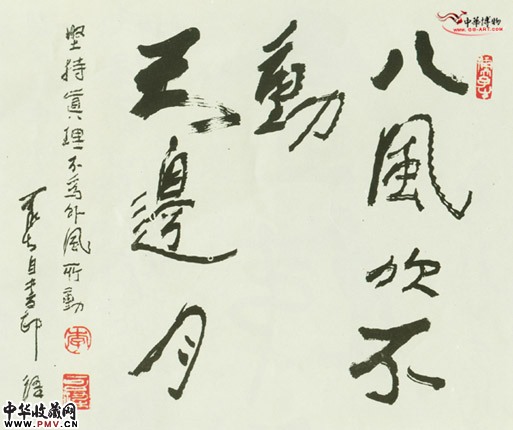 中华博物
WWW.GG-ART.COM
八風吹不
動
天邊月
堅持真理不為外風所動
可染自書
李
中华收藏网
www.PMV.CN